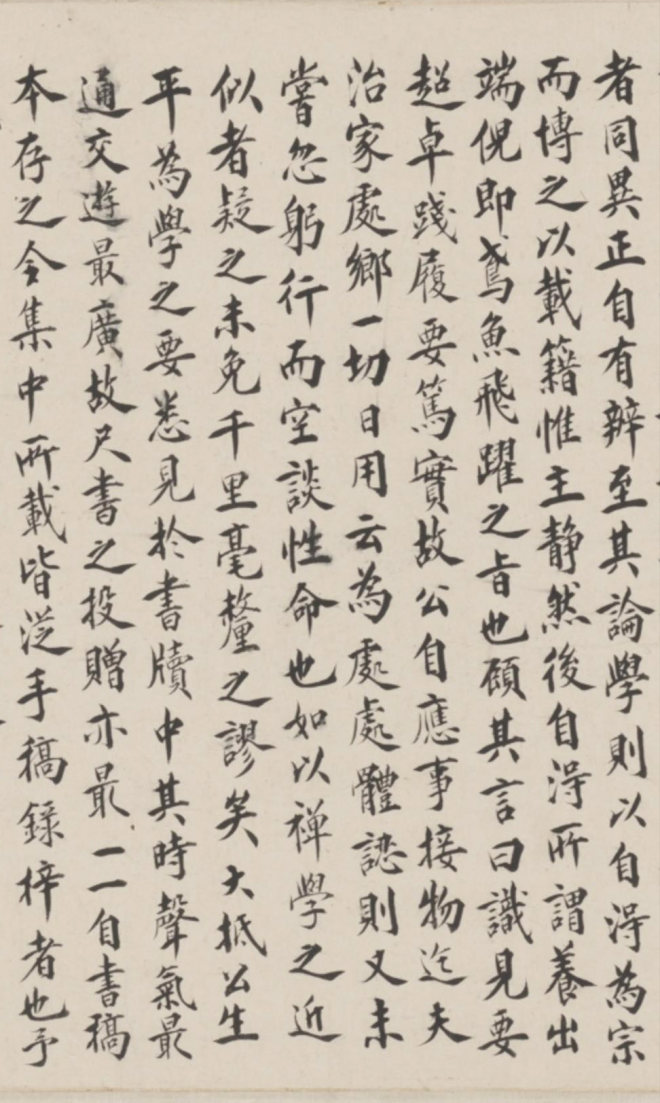 者同異正自有辨至其論學則以自得為宗
而博之以載籍惟主靜然後自得所謂養出
端倪即鳶魚飛躍之旨也顧其言曰識見要
超卓踐履要篤實故公自應事接物迄夫
治家處鄉一切日用云為處處體認則又未
嘗忽躬行而空談性命也如以禅學之近
似者疑之未免千里毫釐之謬矣大抵公生
平為學之要悉見於書牘中其時聲氣最
通交遊最廣故尺書之投贈亦最一一自書稿
本存之今集中所載皆従手稿錄梓者也予